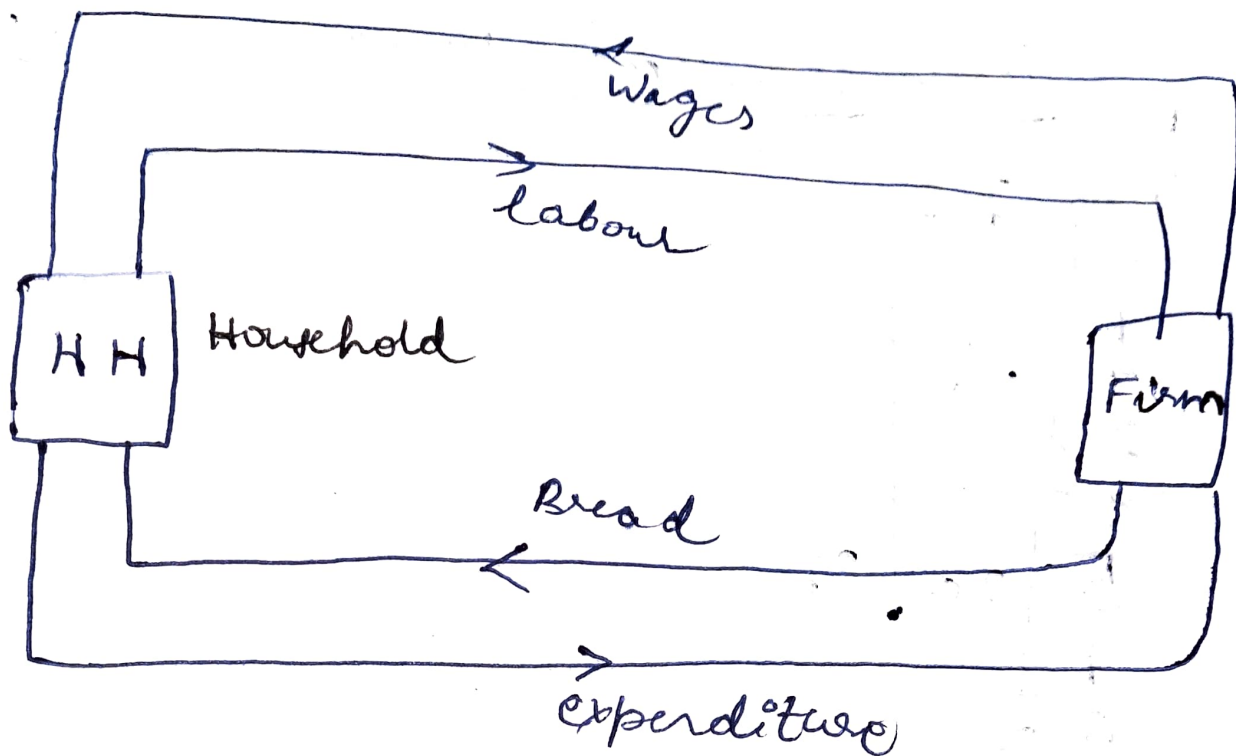 Wages
labour
HH
Household
Firm
Bread
expenditure